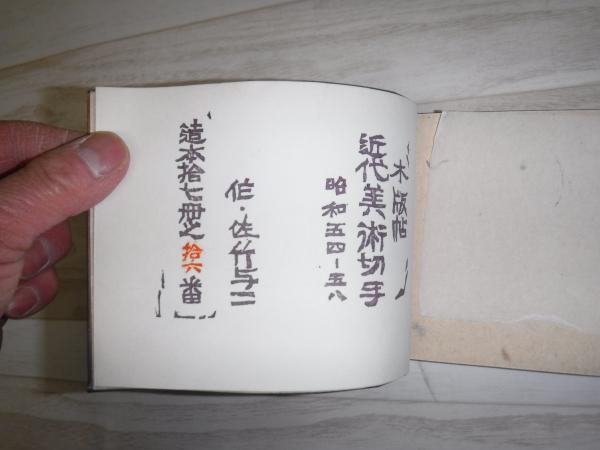 木版帖
近代美術切手
昭和五四-五八
伯・佐竹与二
造本拾七冊之拾六番